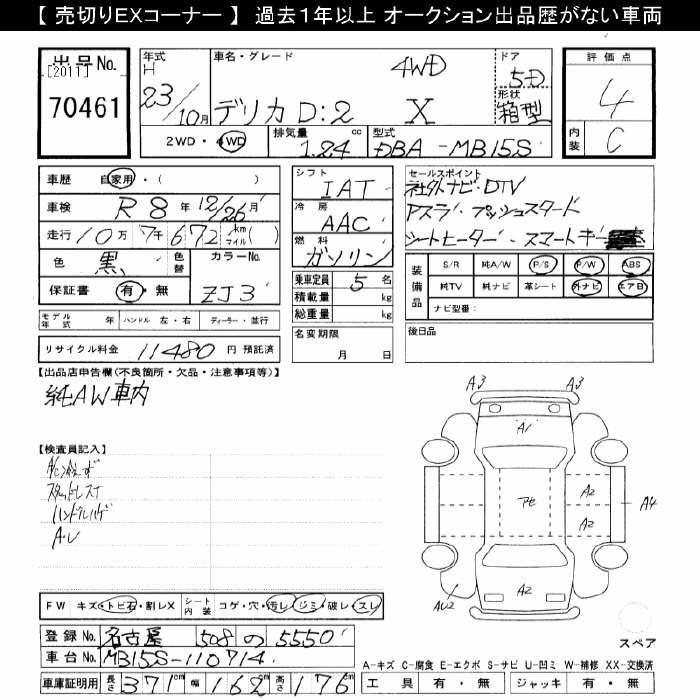 【 売切りEXコーナー 】 過去1年以上 オークション出品歴がない車両
出品No.
[2011]
70461
年式
H
23/10月
車名・グレード
4WD
デリカD:2 X
ドア
5D
形状
箱型
評価点
4
内装
C
2WD・4WD
排気量
cc
1.24
型式
DBA-MB15S
車歴
自家用・( )
車検
R8年12/26月
走行
10万7千672 km マイル
色
黒
色替
カラーNo.
ZJ3
保証書
有・無
シフト
IAT
冷房
AAC
燃料
ガソリン
乗車定員
5名
積載量
kg
総重量
kg
セールスポイント
社外ナビ・DTV
Pスラ・プッシュスタート
シートヒーター・スマートキー
装備品
S/R 純A/W P/S P/W ABS
純TV 純ナビ 革シート 外ナビ エアB
ナビ型番:
モデル年式 年 ハンドル 左・右 ディーラー・並行
リサイクル料金 11480 円 預託済
名変期限
月 日
後日品
【出品店申告欄(不良箇所・欠品・注意事項等)】
純AW車内
【検査員記入】
スタッドレス
ハンドルハゲ
A・U
A3 A3
A1
アセ
A2
A2
A4
AU2
A2
スペア
FW キズ・トビ石・割レX
シート内装 コゲ・穴・汚レ・ジミ・破レ・スレ
登録No. 名古屋 508 の 5550
車台No. MB15S-110714
車庫証明用 長さ 371cm 幅 162cm 高さ 176cm
A-キズ C-腐食 E-エクボ S-サビ U-凹ミ W-補修 XX-交換済
工具 有・無 ジャッキ 有・無